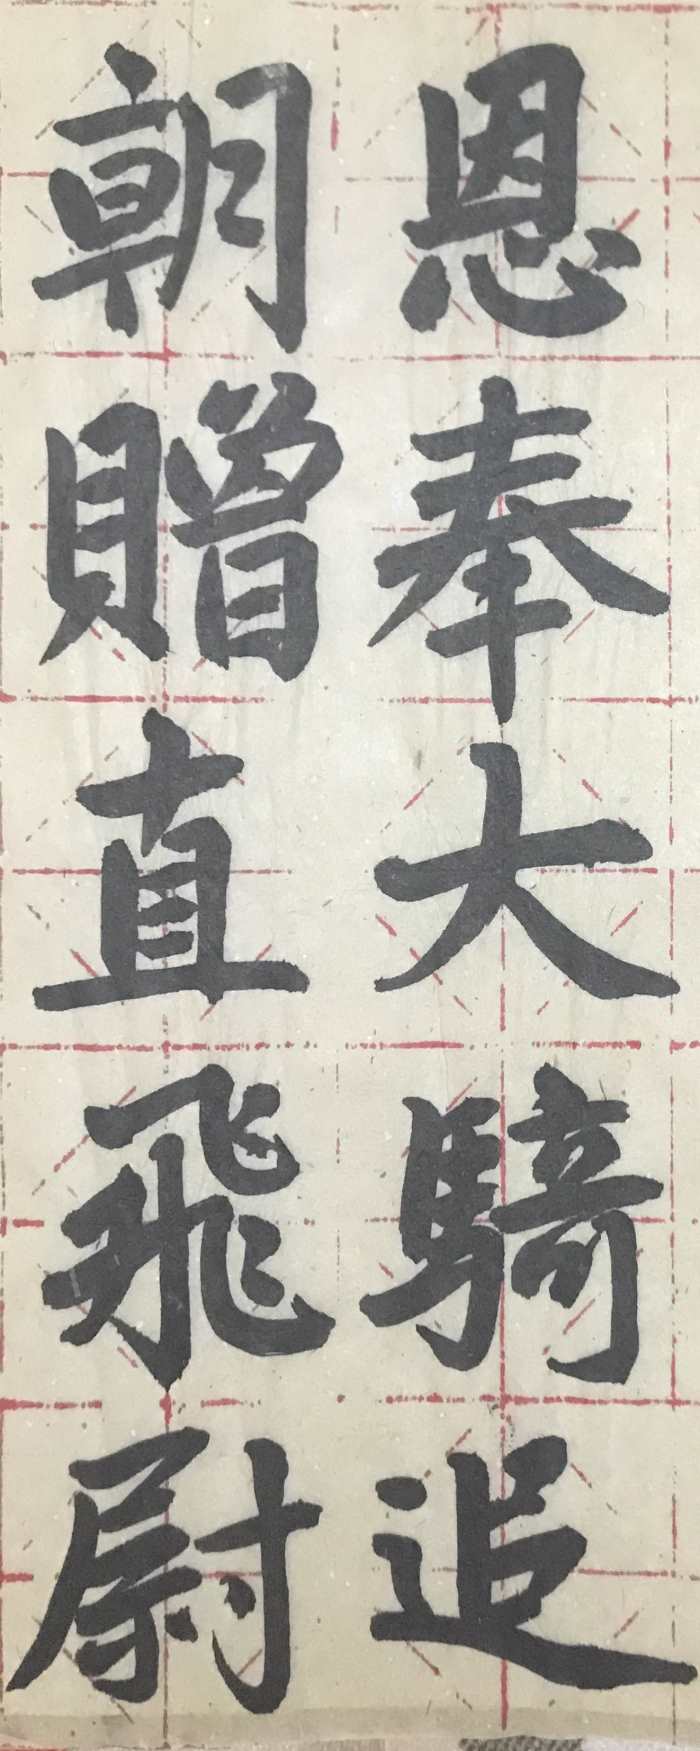 恩奉大騎追
朝贈直飛尉